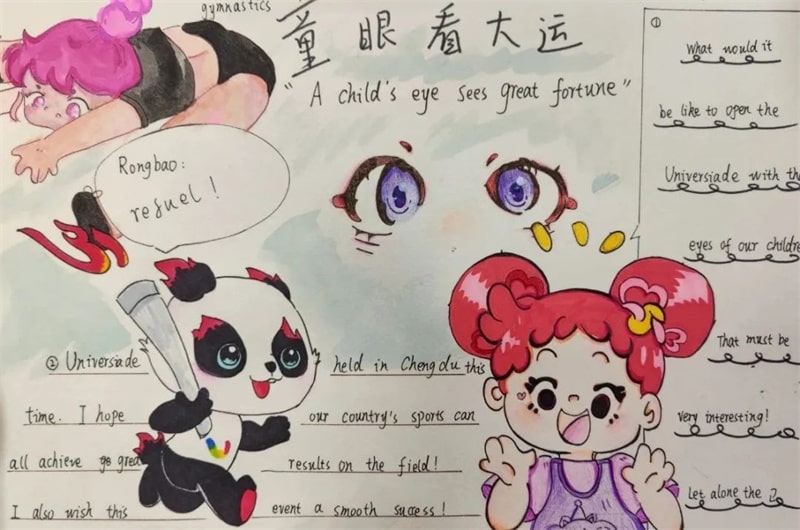 gymnastics
童眼看大运
"A child's eye sees great fortune"
Rongbao:
refuel!
①
What would it
be like to open the
Universiade with the
eyes of our childre
That must be
very interesting!
Let alone the
② Universiade held in Chengdu this
time. I hope our country's sports can
all achieve great results on the field!
I also wish this event a smooth success!